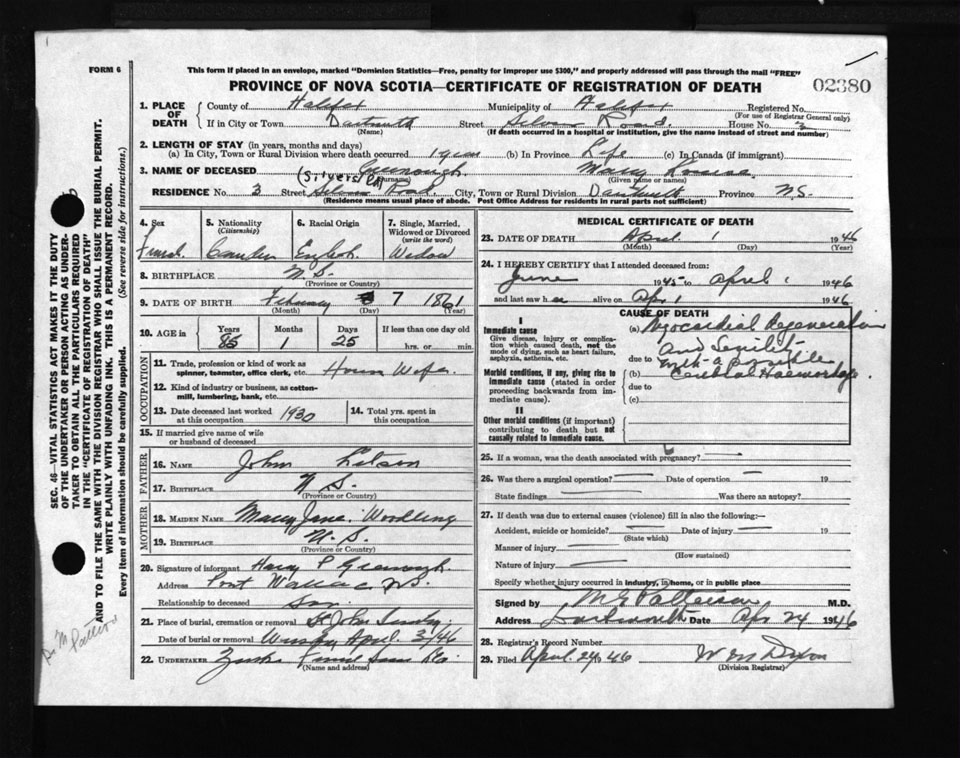 FORM 6
This form if placed in an envelope, marked "Dominion Statistics—Free, penalty for improper use $300," and properly addressed will pass through the mail "FREE"
PROVINCE OF NOVA SCOTIA—CERTIFICATE OF REGISTRATION OF DEATH
02380
1. PLACE OF DEATH County of Halifax Municipality of Halifax Registered No.
(For use of Registrar General only)
If in City or Town Dartmouth Street Road House No. 3
(Name) (If death occurred in a hospital or institution, give the name instead of street and number)
2. LENGTH OF STAY (in years, months and days)
(a) In City, Town or Rural Division where death occurred 1 year (b) In Province Life (c) In Canada (if immigrant)
3. NAME OF DECEASED Mary
(Silvers Rd) (Surname) (Given name or names)
RESIDENCE No. 3 Street Road City, Town or Rural Division Dartmouth Province N.S.
(Residence means usual place of abode. Post Office Address for residents in rural parts not sufficient)
4. Sex 5. Nationality (Citizenship) 6. Racial Origin 7. Single, Married, Widowed or Divorced (write the word)
Female English Widow
8. BIRTHPLACE N.S.
(Province or Country)
9. DATE OF BIRTH February 7 1861
(Month) (Day) (Year)
10. AGE in Years Months Days If less than one day old
85 1 25 hrs. or min.
OCCUPATION
11. Trade, profession or kind of work as spinner, teamster, office clerk, etc. House Wife
12. Kind of industry or business, as cotton-mill, lumbering, bank, etc.
13. Date deceased last worked at this occupation 1930 14. Total yrs. spent in this occupation
15. If married give name of wife or husband of deceased
FATHER
16. NAME John
17. BIRTHPLACE N.S.
(Province or Country)
MOTHER
18. MAIDEN NAME Mary Jane
19. BIRTHPLACE N.S.
(Province or Country)
20. Signature of informant Harry P
Address Port Wallace N.S.
Relationship to deceased Son
21. Place of burial, cremation or removal St John
Date of burial or removal April 3/46
22. UNDERTAKER
(Name and address)
MEDICAL CERTIFICATE OF DEATH
23. DATE OF DEATH April 1 1946
(Month) (Day)
24. I HEREBY CERTIFY that I attended deceased from:
June 1945 to April 1 1946
and last saw her alive on Apr 1 1946
CAUSE OF DEATH
I
Immediate cause
Give disease, injury or complication which caused death, not the mode of dying, such as heart failure, asphyxia, asthenia, etc.
(a) Myocardial Degeneration
and Senility
due to with a possible
Morbid conditions, if any, giving rise to immediate cause (stated in order proceeding backwards from immediate cause).
(b) Cerebral Haemorrhage
due to
(c)
II
Other morbid conditions (if important) contributing to death but not causally related to immediate cause.
25. If a woman, was the death associated with pregnancy?
26. Was there a surgical operation? Date of operation 19
State findings Was there an autopsy?
27. If death was due to external causes (violence) fill in also the following:—
Accident, suicide or homicide? Date of injury 19
(State which)
Manner of injury
(How sustained)
Nature of injury
Specify whether injury occurred in industry, in home, or in public place
Signed by M.D.
Address Dartmouth Date Apr 24 1946
28. Registrar's Record Number
29. Filed April 24 1946 Dixon
(Division Registrar)
SEC. 46—VITAL STATISTICS ACT MAKES IT THE DUTY
OF THE UNDERTAKER OR PERSON ACTING AS UNDER-
TAKER TO OBTAIN ALL THE PARTICULARS REQUIRED
IN THE "CERTIFICATE OF REGISTRATION OF DEATH"
AND TO FILE THE SAME WITH THE DIVISION REGISTRAR WHO SHALL ISSUE THE BURIAL PERMIT.
WRITE PLAINLY WITH UNFADING INK. THIS IS A PERMANENT RECORD.
Every item of information should be carefully supplied. (See reverse side for instructions.)